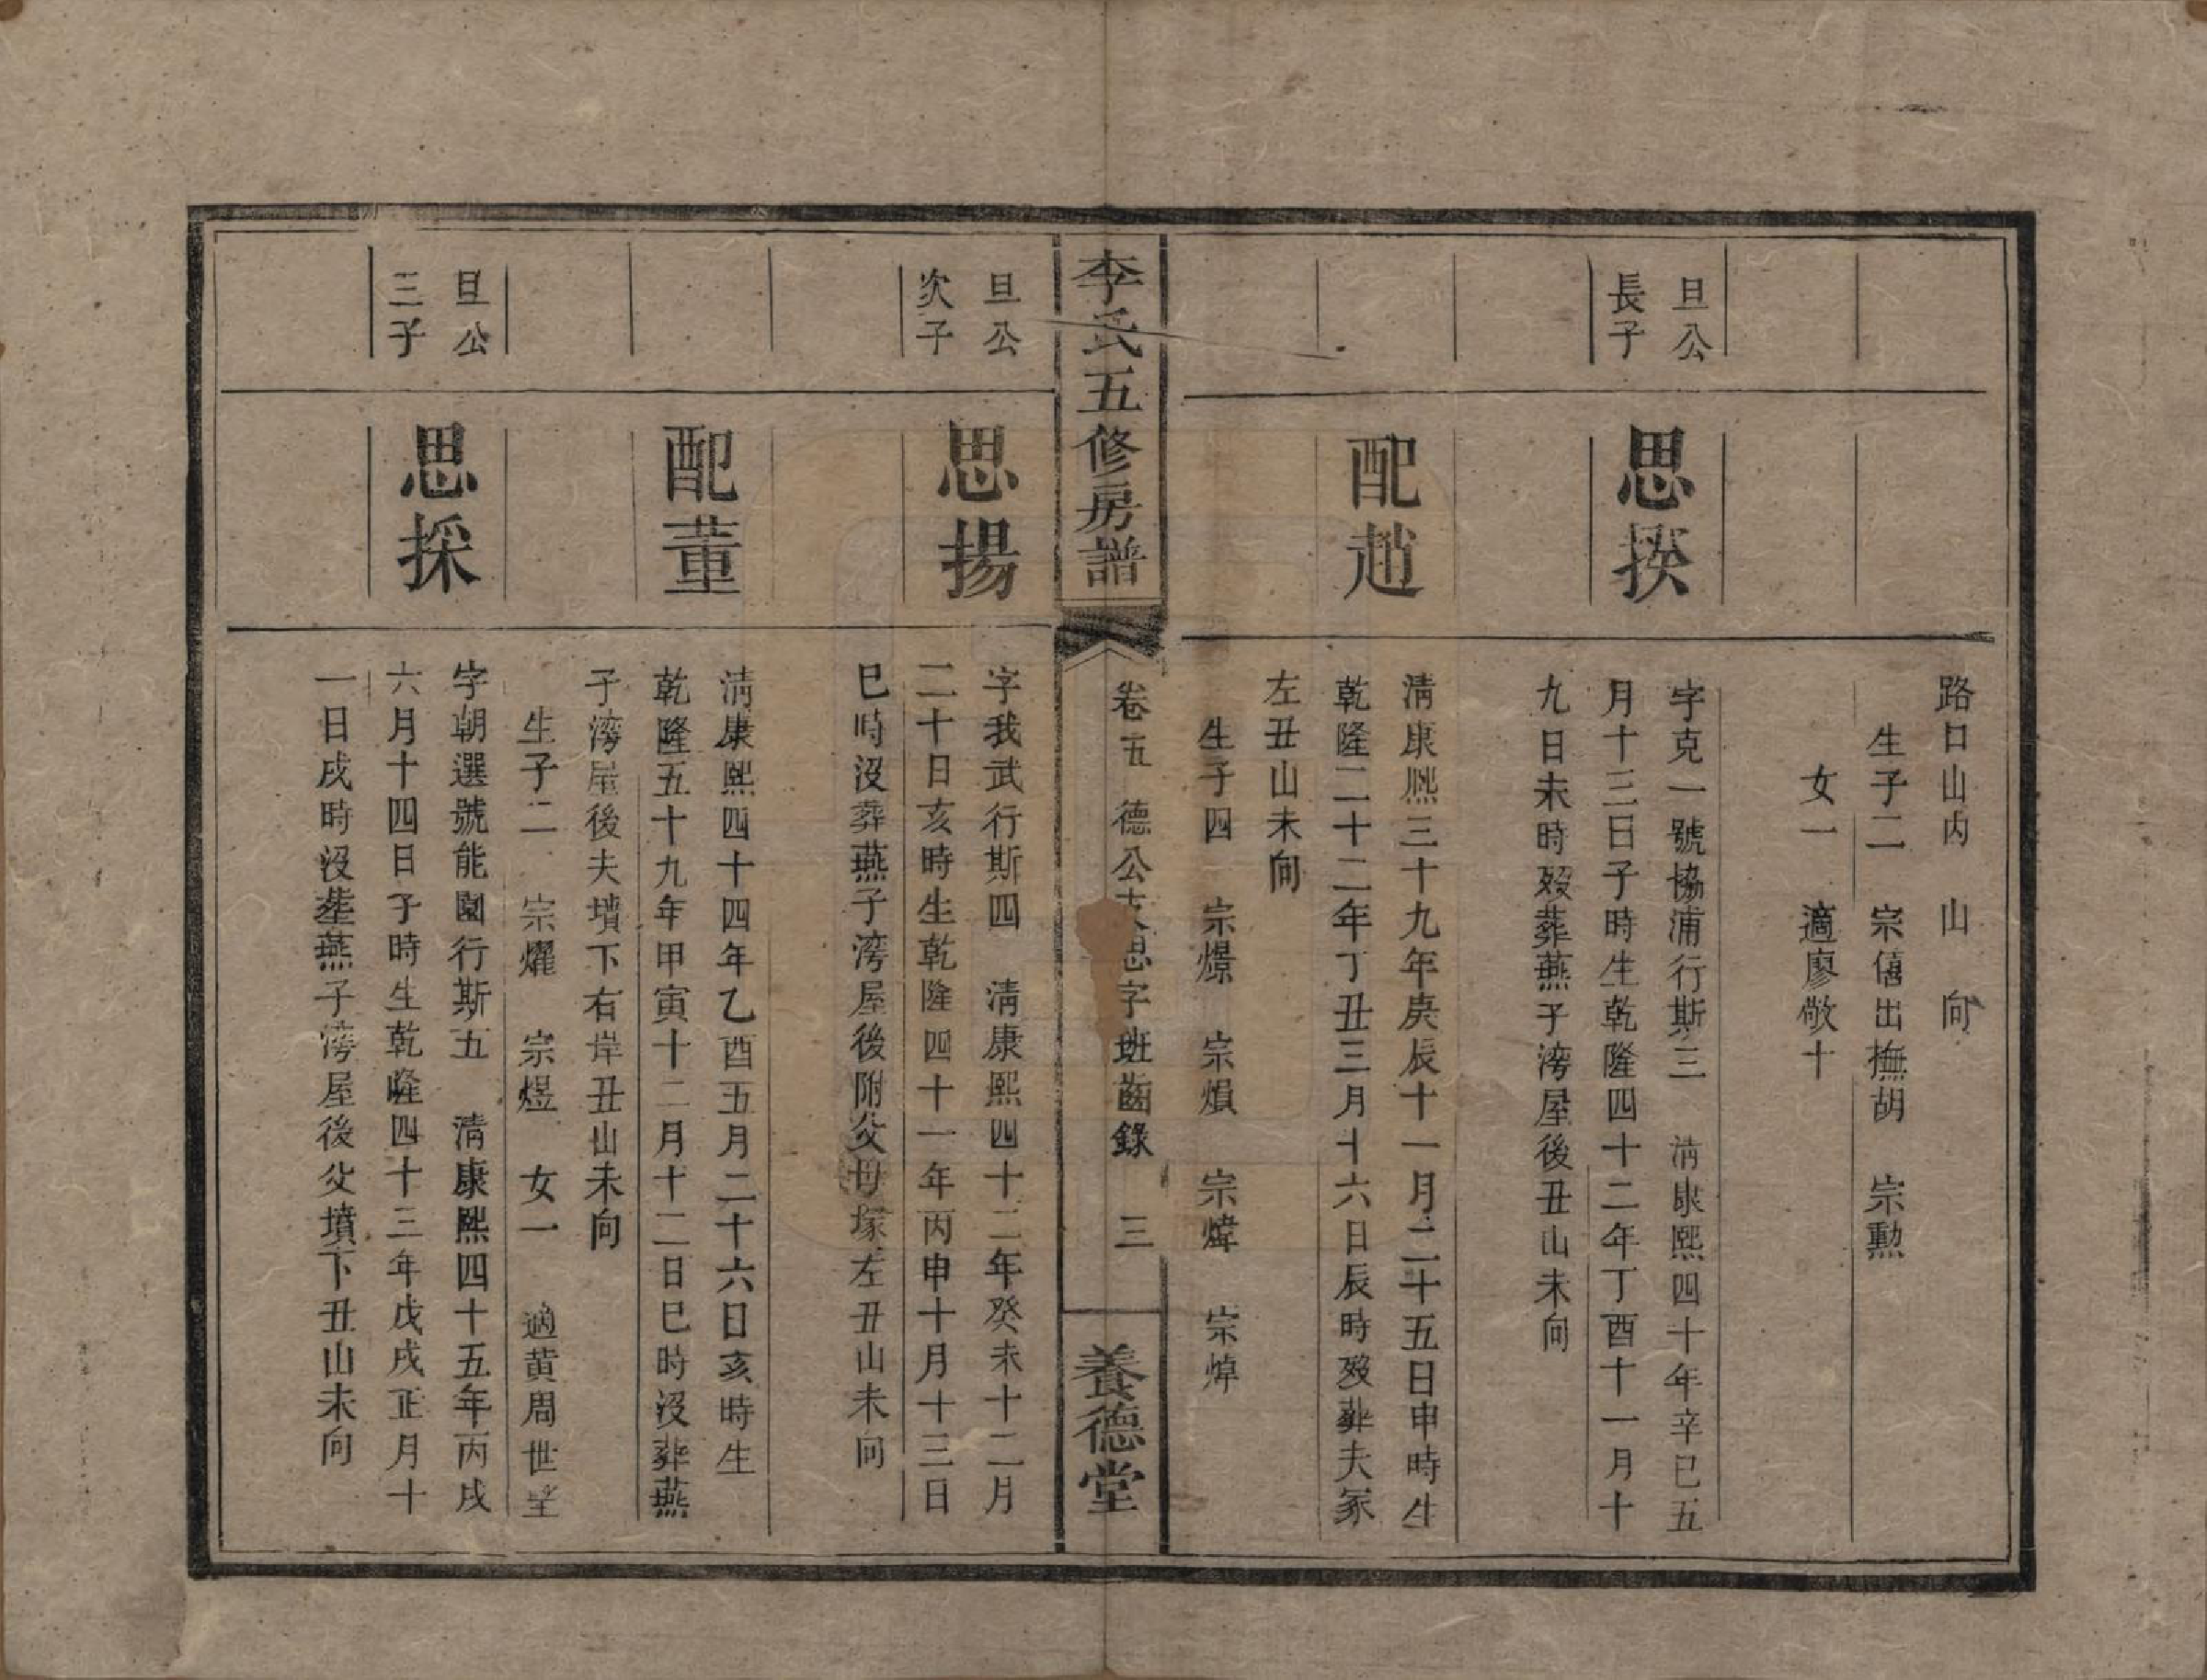 路口山内　山　向
生子二　宗僖出撫胡　宗勲
女一　適廖敬十
旦公
長子
思揆
字克一號協浦行斯三　淸康熙四十年辛巳五
月十三日子時生乾隆四十二年丁酉十一月十
九日未時歿葬燕子滂屋後丑山未向
配趙
淸康熙三十九年庚辰十一月二十五日申時生
乾隆二十二年丁丑三月十六日辰時歿葬夫冢
左丑山未向
生子四　宗燝　宗熉　宗煒　宗焯
李氏五修房譜
卷五　德公支思字班齒錄　三
養德堂
旦公
次子
思揚
字我武行斯四　淸康熙四十二年癸未十二月
二十日亥時生乾隆四十一年丙申十月十三日
巳時沒葬燕子滂屋後附父母塚左丑山未向
配董
淸康熙四十四年乙酉五月二十六日亥時生
乾隆五十九年甲寅十二月十二日巳時沒葬燕
子滂屋後夫墳下右岸丑山未向
生子二　宗燿　宗煜　女一　適黄周世
旦公
三子
思採
字朝選號能園行斯五　淸康熙四十五年丙戌
六月十四日子時生乾隆四十三年戊戌正月十
一日戌時沒塟燕子滂屋後父墳下丑山未向